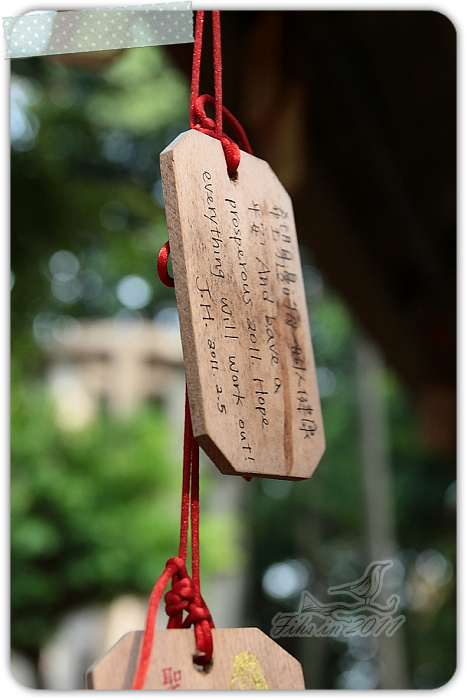 希望身邊的
平安! And have a
prosperous 2011. Hope
everything will work out!
J.H. 2011. 2.5
聖
Fihsin 2011